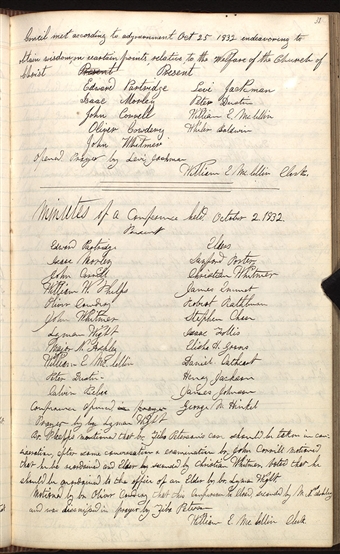 Council met according to adjournment Oct 25 1832 endeavoring to
attain wisdom on certain points relative to the welfare of the Church of
Christ Present Present
Edward Partridge Levi Jackman
Isaac Morley Peter Dustin
John Corrill William E. McLellin
Oliver Cowdery Wheeler Baldwin
John Whitmer
Opened Prayer by Levi Jackman
William E. McLellin Clerk.
Minutes of a Conference held, October 2. 1832.
Present
Edward Partridge Elders
Isaac Morley Sanford Porter
John Corrill Christian Whitmer
William W. Phelps James Emmet
Oliver Cowdery Robert Rathbun
John Whitmer Stephen Chase
Lyman Wight Isaac
Major N. Ashley Elisha H. Groves
William E. McLellin Daniel Cathcart
Peter Dustin Henry Jackson
Calvin Beebe James Johnson
Conference opened in prayer George M. Hinkle
Prayer by br Lyman Wight
Br. Phelps mentioned that br. Ziba Peterson's case should be taken in con-
sideration, after some conversation & examination by John Corrill motioned
that he be reordained an Elder by seconded by Christian Whitmer, Voted that he
should be ordained to the office of an Elder by br. Lyman Wight.
Motioned by br. Oliver Cowdery that this Conference be closed, seconded by M. N. Ashley
and was dismissed in prayer by Ziba Peterson
William E. McLellin Clerk